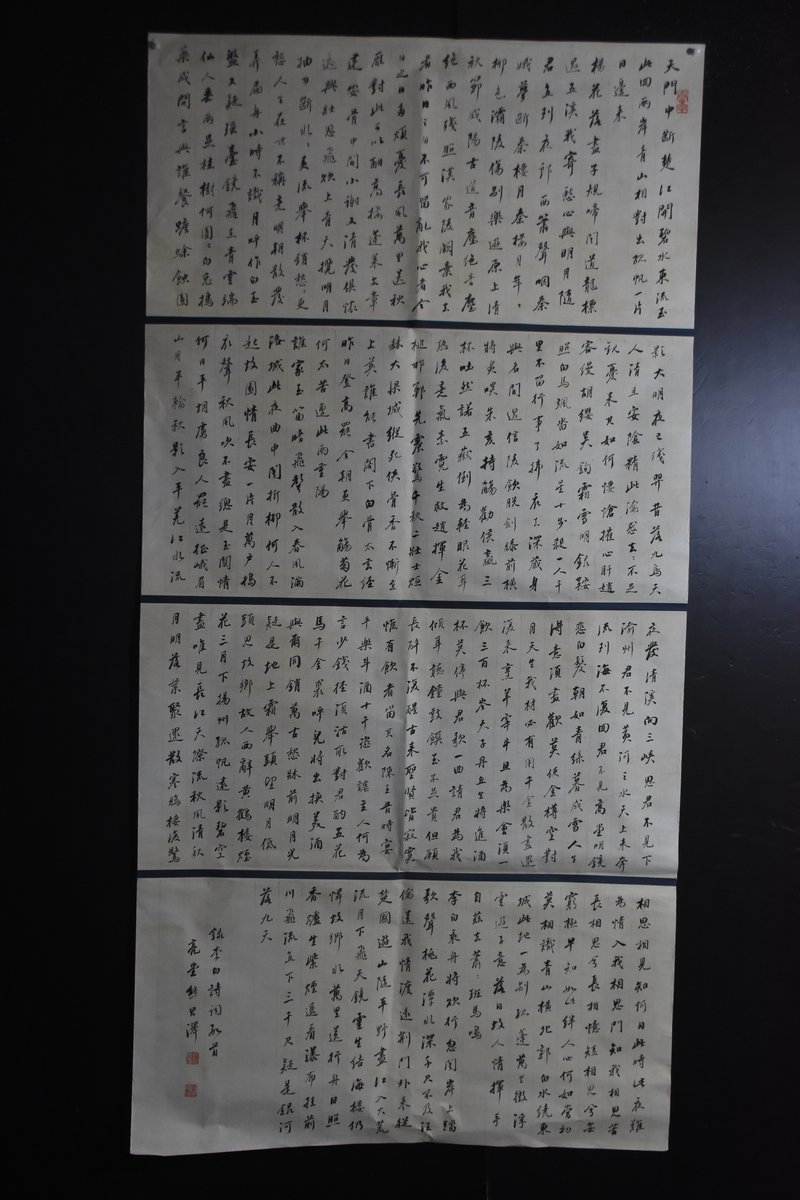 天門中斷楚江開碧水東流至
此回兩岸青山相對出孤帆一片
日邊來
楊花落盡子規啼聞道龍標
過五溪我寄愁心與明月隨
君直到夜郎西簫聲咽秦
娥夢斷秦樓月秦樓月年〻
柳色灞陵傷別樂遊原上清
秋節咸陽古道音塵絕音塵
絕西風殘照漢家陵闕棄我去
者昨日之日不可留亂我心者今
日之日多煩憂長風萬里送秋
雁對此可以酣高樓蓬萊文章
建安骨中間小謝又清發俱懷
逸興壯思飛欲上青天攬明月
抽刀斷水〻更流舉杯銷愁〻更
愁人生在世不稱意明朝散髮
弄扁舟小時不識月呼作白玉
盤又疑瑤臺鏡飛在青雲端
仙人垂兩足桂樹何團〻白兔搗
藥成問言與誰餐蟾蜍蝕圓
影大明夜已殘羿昔落九烏天
人清且安陰精此淪惑去〻不足
觀憂來其如何悽愴摧心肝趙
客縵胡纓吳鉤霜雪明銀鞍
照白馬颯沓如流星十步殺一人千
里不留行事了拂衣去深藏身
與名閒過信陵飲脫劍膝前橫
將炙啖朱亥持觴勸侯嬴三
杯吐然諾五嶽倒為輕眼花耳
熱後意氣素霓生救趙揮金
槌邯鄲先震驚千秋二壯士烜
赫大梁城縱死俠骨香不慚世
上英誰能書閣下白首太玄經
昨日登高罷今朝更舉觴菊花
何太苦遭此兩重陽
誰家玉笛暗飛聲散入春風滿
洛城此夜曲中聞折柳何人不
起故園情長安一片月萬戶搗
衣聲秋風吹不盡總是玉關情
何日平胡虜良人罷遠征峨眉
山月半輪秋影入平羌江水流
夜發清溪向三峽思君不見下
渝州君不見黃河之水天上來奔
流到海不復回君不見高堂明鏡
悲白髮朝如青絲暮成雪人生
得意須盡歡莫使金樽空對
月天生我材必有用千金散盡還
復來烹羊宰牛且為樂會須一
飲三百杯岑夫子丹丘生將進酒
杯莫停與君歌一曲請君為我
傾耳聽鐘鼓饌玉不足貴但願
長醉不復醒古來聖賢皆寂寞
惟有飲者留其名陳王昔時宴
平樂斗酒十千恣歡謔主人何為
言少錢徑須沽取對君酌五花
馬千金裘呼兒將出換美酒
與爾同銷萬古愁牀前明月光
疑是地上霜舉頭望明月低
頭思故鄉故人西辭黃鶴樓煙
花三月下揚州孤帆遠影碧空
盡唯見長江天際流秋風清秋
月明落葉聚還散寒鴉棲復驚
相思相見知何日此時此夜難
為情入我相思門知我相思苦
長相思兮長相憶短相思兮無
窮極早知如此絆人心何如當初
莫相識青山橫北郭白水繞東
城此地一為別孤蓬萬里徵浮
雲遊子意落日故人情揮手
自茲去蕭〻班馬鳴
李白乘舟將欲行忽聞岸上踏
歌聲桃花潭水深千尺不及汪
倫送我情渡遠荊門外來從
楚國遊山隨平野盡江入大荒
流月下飛天鏡雲生結海樓仍
憐故鄉水萬里送行舟日照
香爐生紫煙遙看瀑布挂前
川飛流直下三千尺疑是銀河
落九天
錄李白詩詞數首